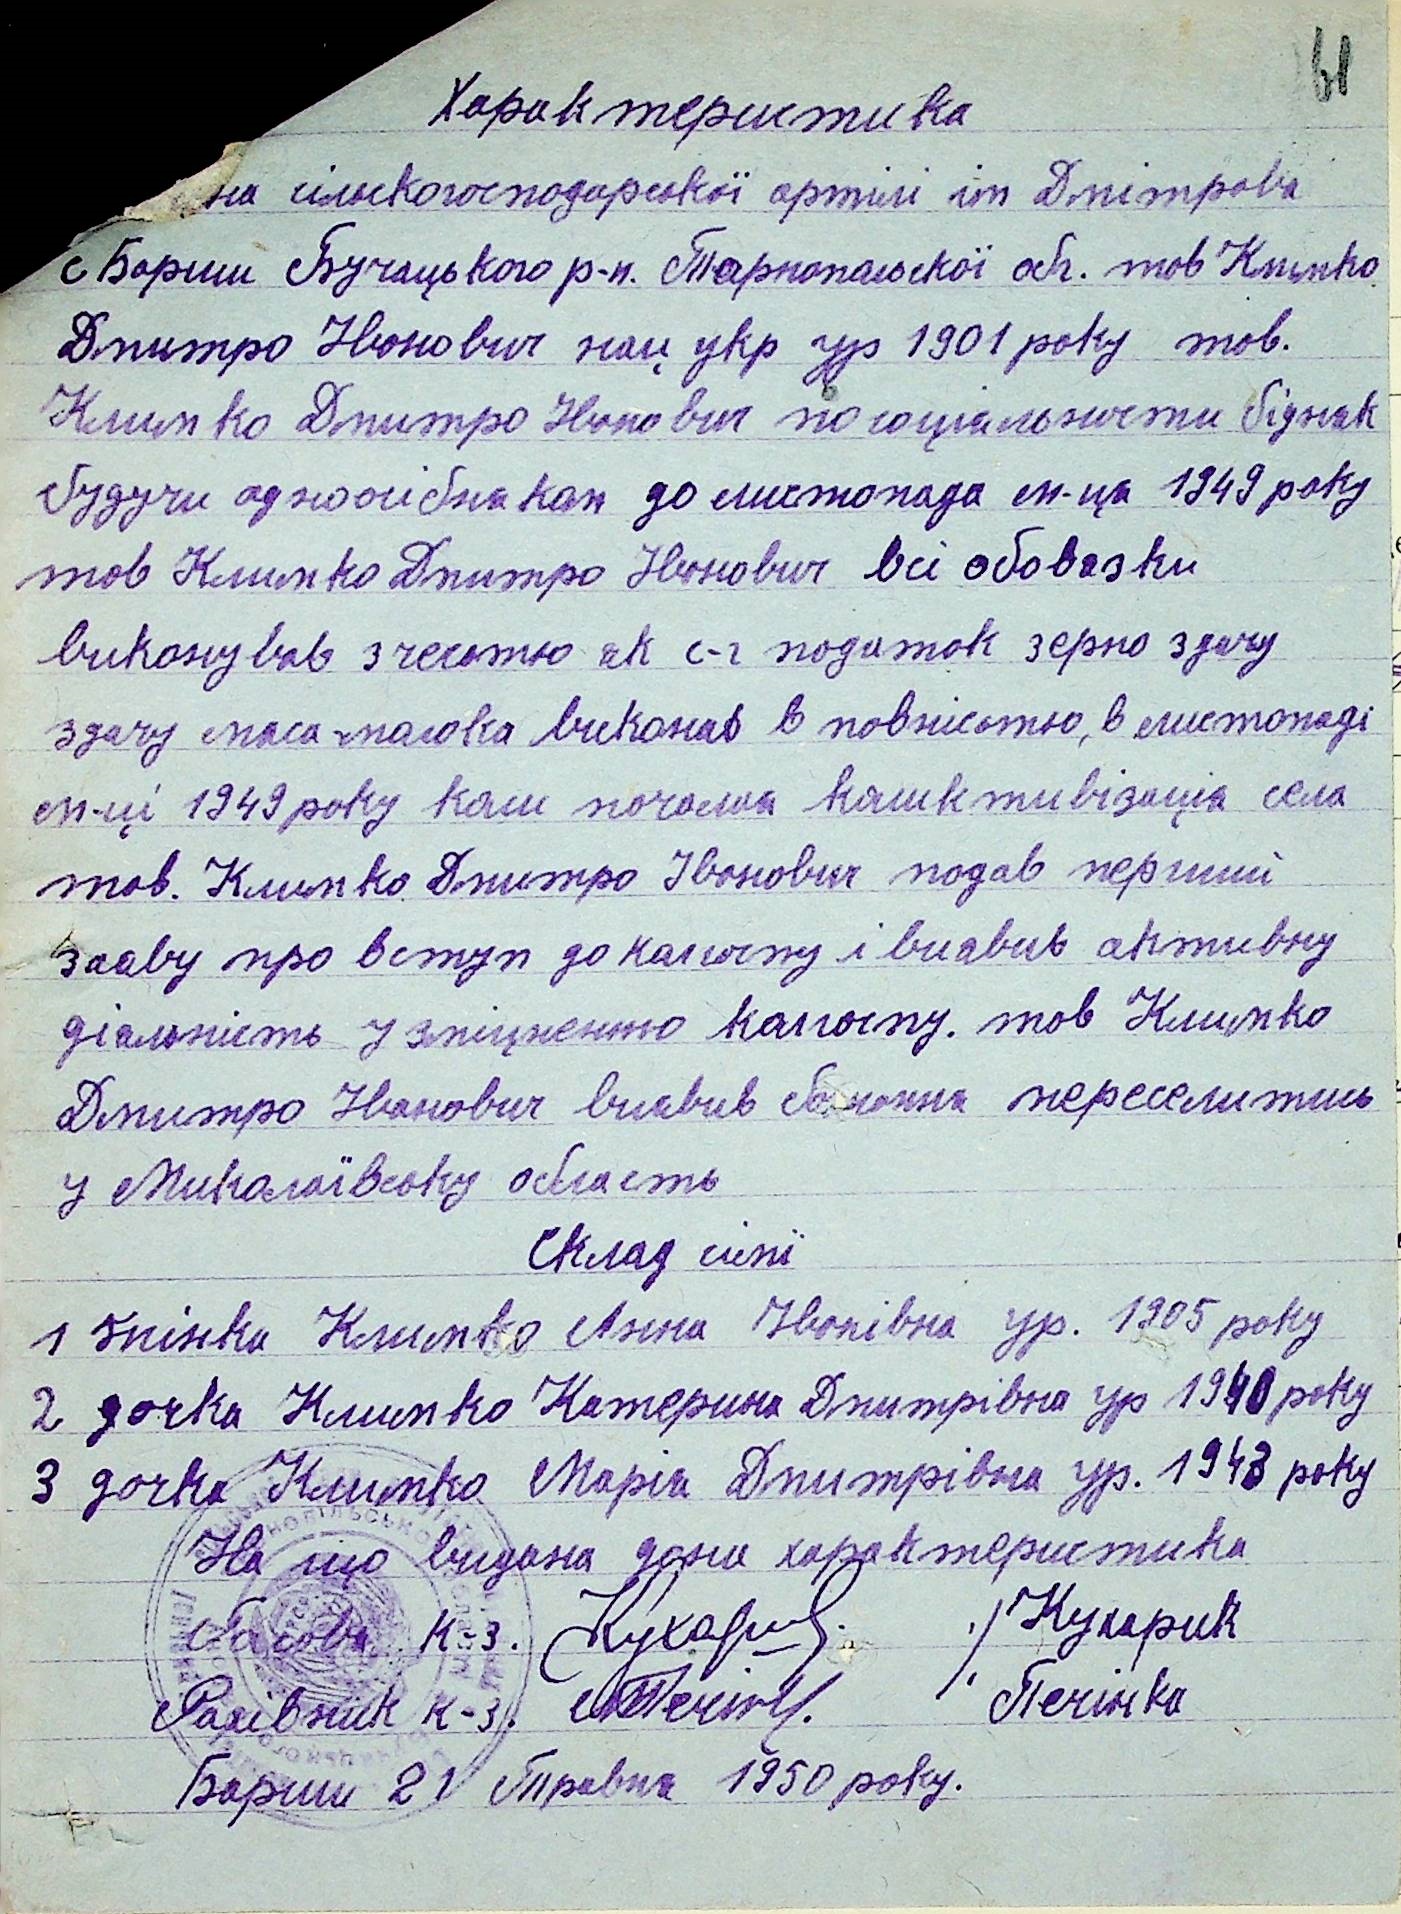 61
Характеристика
на сільскогосподарської артілі ім Дмітрова
с Бариш Бучацького р-н. Тарнопольскої обл. тов Климко
Дмитро Іванович нац укр ур 1901 року тов.
Климко Дмитро Іванович по соціальности бідняк
будучи одноосібнаком до листопада м-ця 1949 року
тов Климко Дмитро Іванович всі обовязки
виконував з честю як с-г податок зерно здачу
здачу мяса молока виконав в повністю, в листопаді
м-ці 1949 року коли почалоя коликтивізація села
тов. Климко Дмитро Іванович подав перший
зааву про вступ до колгоспу і виавив активну
діяльність у зміцненню колгоспу. тов Климко
Дмитро Іванович виавив бажання переселитись
у Миколаївську область
Склад сімї
1 жінка Климко Анна Іванівна ур. 1905 року
2 дочка Климко Катерина Дмитрівна ур 1940 року
3 дочка Климко Марія Дмитрівна ур. 1943 року
На що видана дана характеристика
Голова к-з. Кухарик Кухарик
Рахівник к-з. Печінка
Бариш 21 Травня 1950 року.